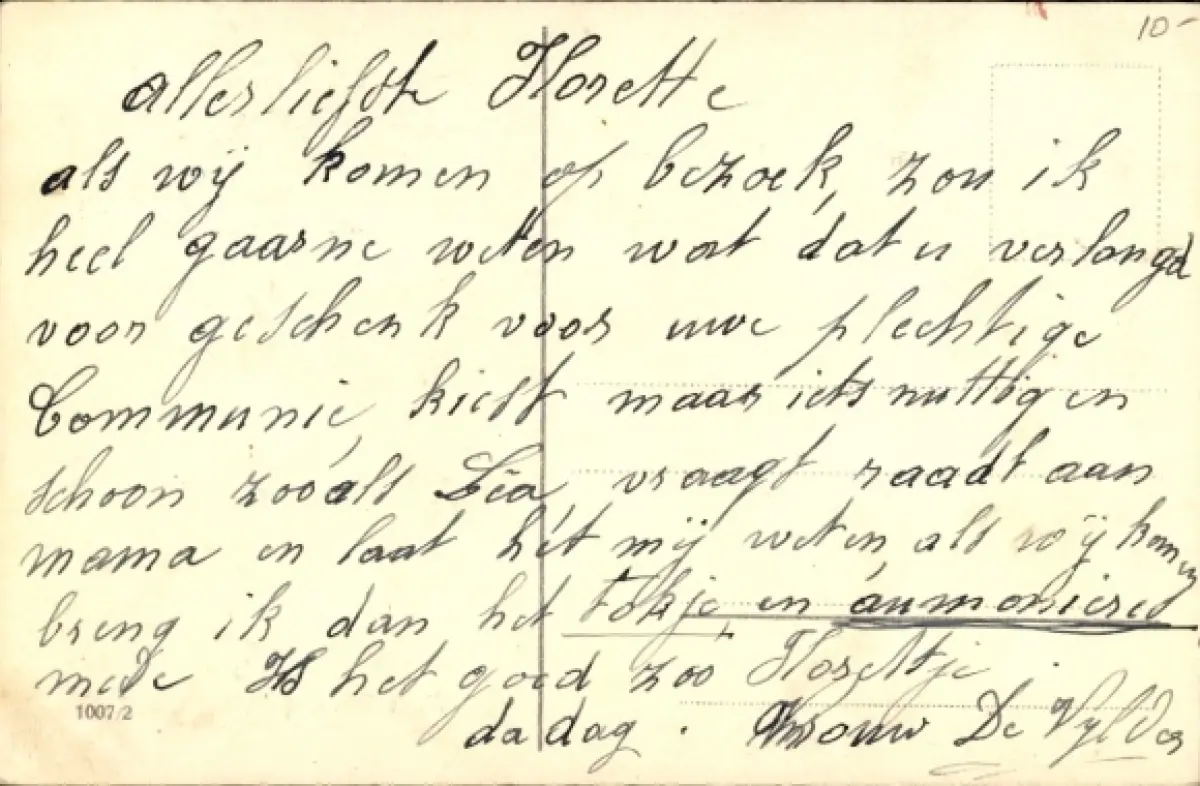 10-
allerliefste Florette
als wij komen op bezoek, zou ik
heel gaarne weten wat dat u verlangd
voor geschenk voor uwe plechtige
Communie, kiest maar iets nuttig en
schoon zooals Lea, vraagt raadt aan
mama en laat het mij weten, als wij komen
breng ik dan het tokje en aumonieret
mede Is het goed zoo Florettje
1007/2
dadag. Vrouw De Vylder